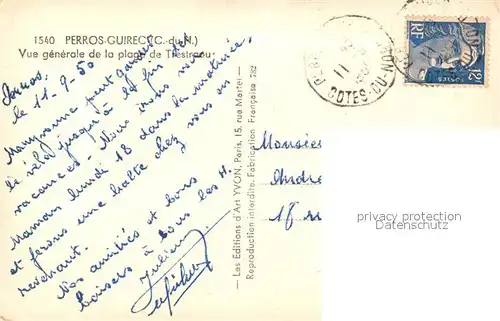 1540 PERROS-GUIREC (C.-du-N.)
Vue générale de la plage de Trestraou
Perros
le 11-9-50
Maryvonne peut garder
le vélo jusqu'à la fin des
vacances. Nous irons voir
Maman lundi 18 dans la matinée
et ferons une halte chez vous en
revenant.
Nos amitiés et bons
baisers à tous les 4.
— Les Editions d'Art YVON, Paris, 15, rue Martel —
Reproduction interdite. Fabrication Française 782
COTES-DU-NORD
RF
12F
Monsieur
André
18
privacy protection
Datenschutz